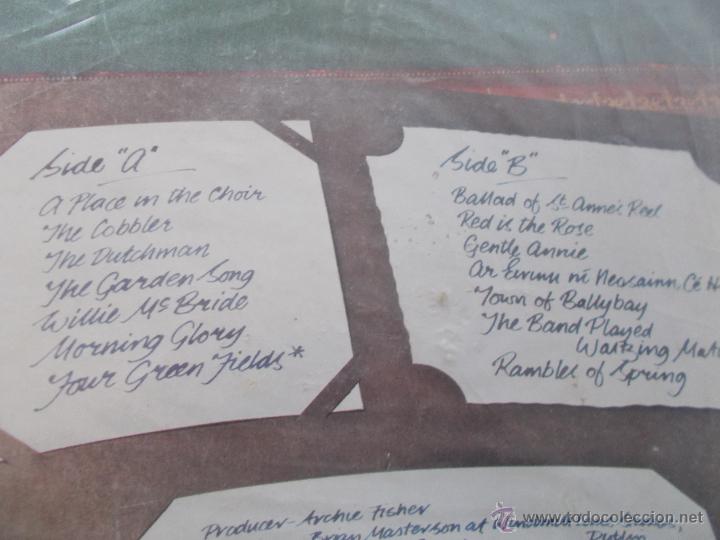 Side "A"
A Place in the Choir
The Cobbler
The Dutchman
The Garden Song
Willie McBride
Morning Glory
Four Green Fields*
Side "B"
Ballad of St Anne's Reel
Red is the Rose
Gentle Annie
Ar Éirinn ní Neosainn Cé H
Town of Ballybay
The Band Played
Waltzing Mat
Rambles of Spring
Producer - Archie Fisher
Brian Masterson at
Dublin
© todocoleccion
www.todocoleccion.net